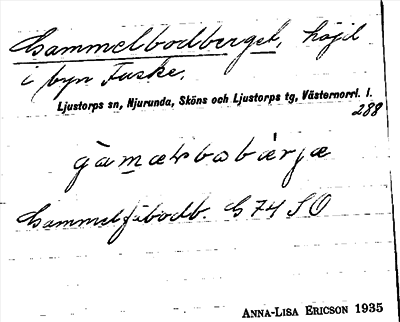 Gammelbodberget, höjd
i byn Fuske.
Ljustorps sn, Njurunda, Sköns och Ljustorps tg, Västernorrl. l.
288
gàmæḷbobǽrjæ
Gammelfäbodb. G74 SO
ANNA-LISA ERICSON 1935